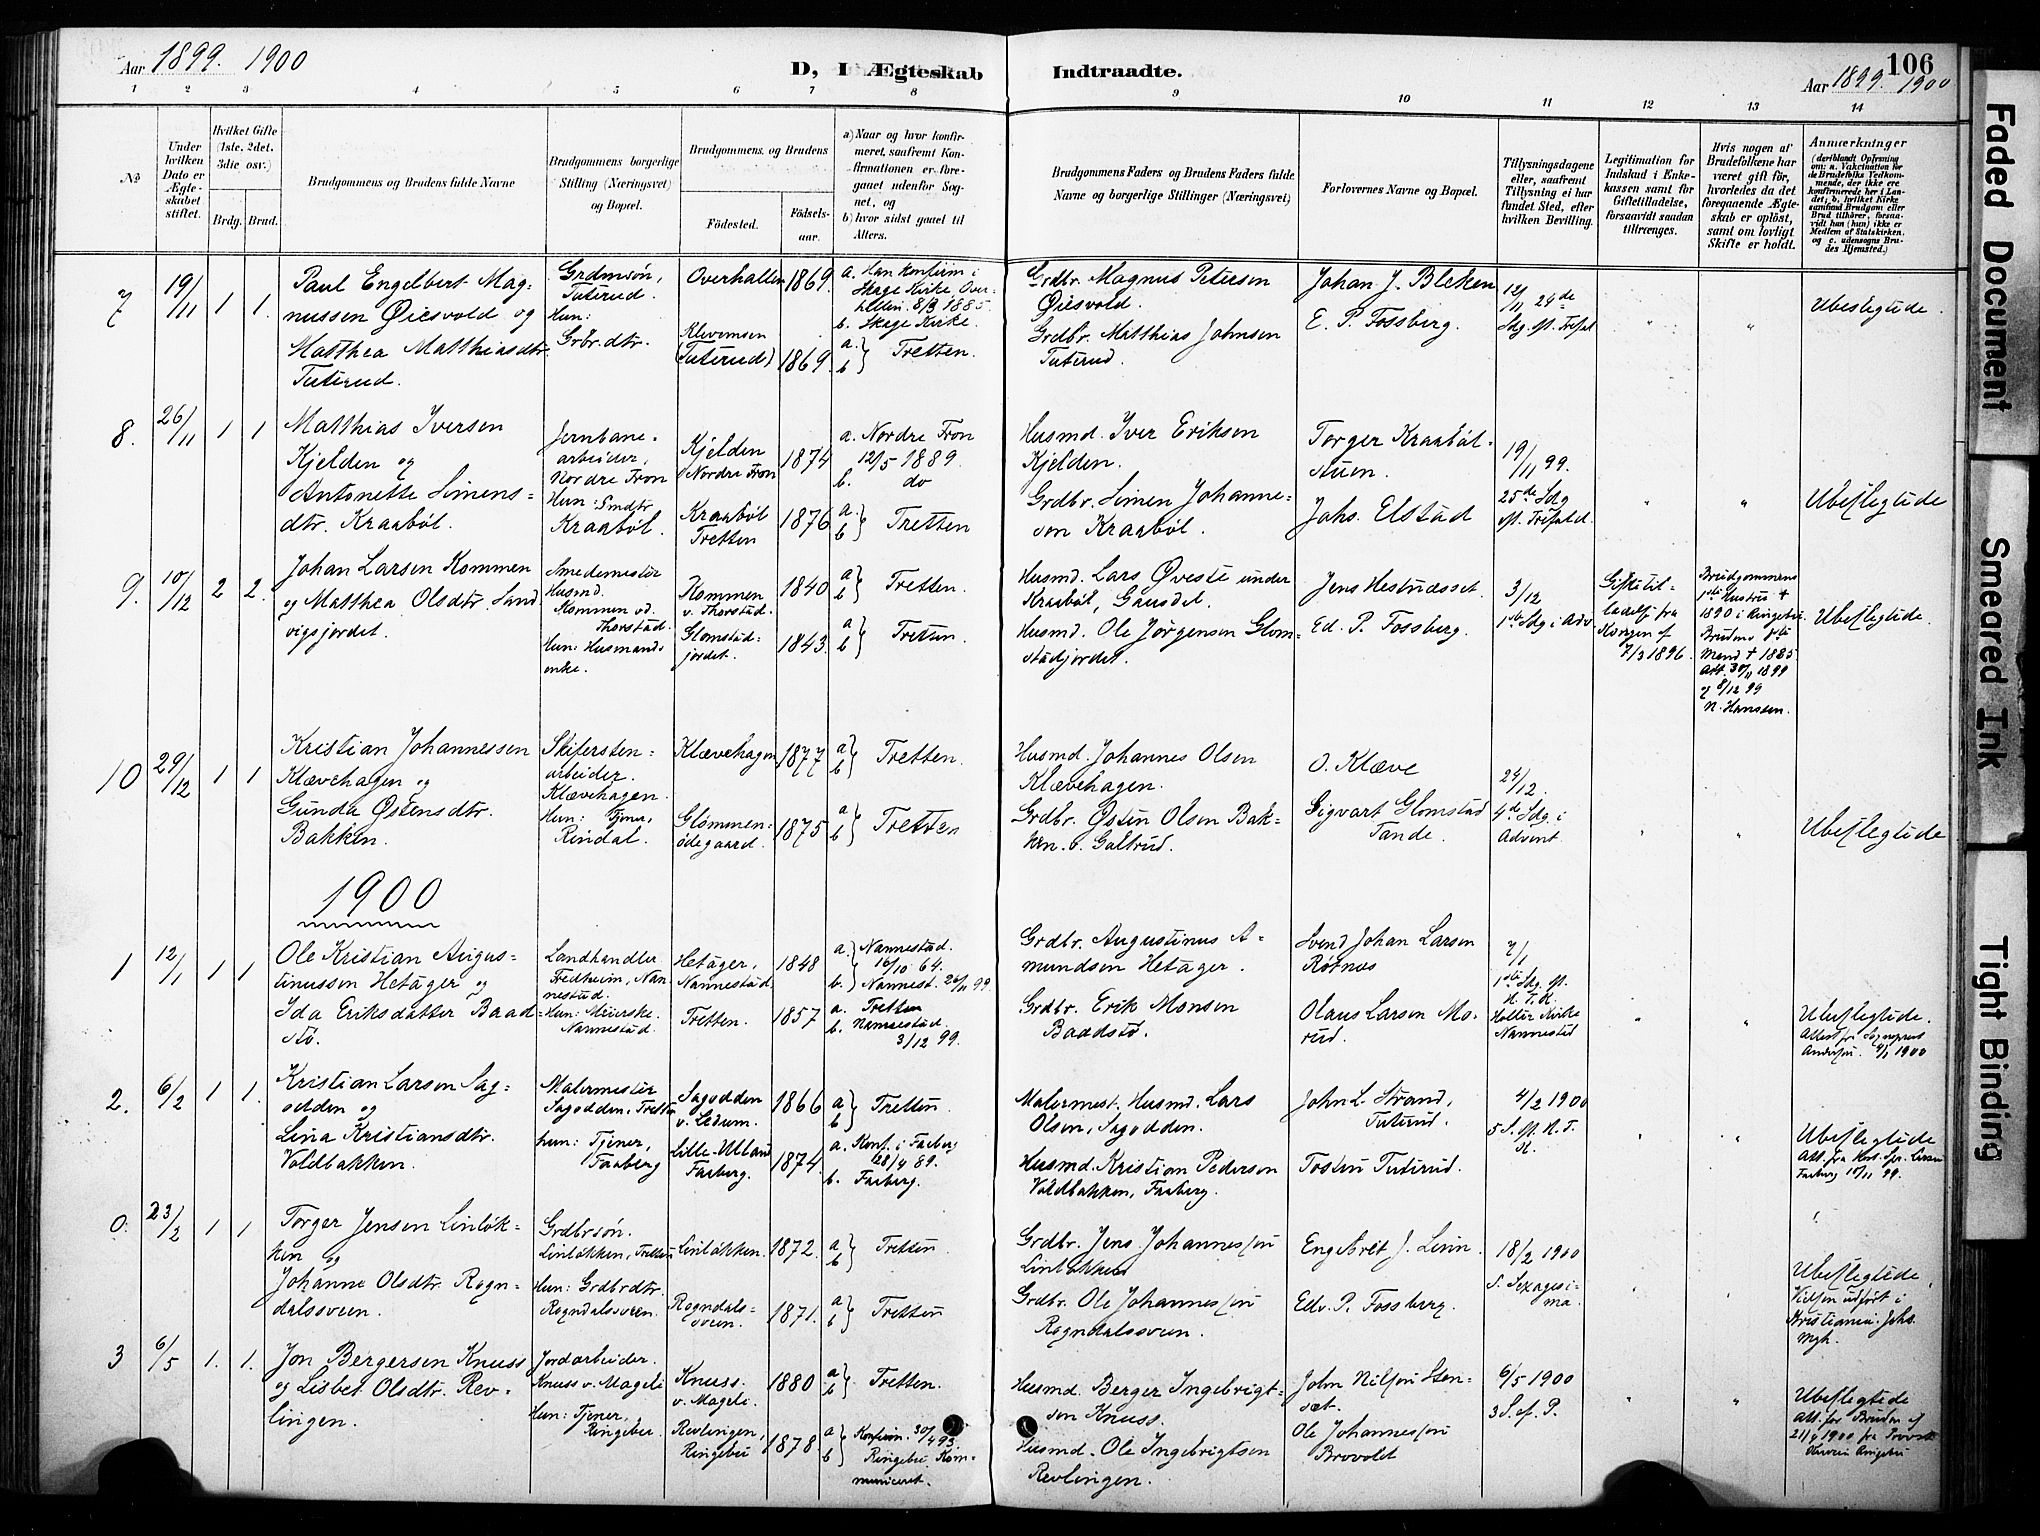 Aar 1899. 1900
D, I Ægteskab Indtraadte.
106
Aar 1899. 1900
1 2 3 4 5 6 7 8 9 10 11 12 13 14
№
Under hvilken Dato er Ægteskabet stiftet.
Hvilket Gifte (1ste, 2det, 3die osv.)
Brdg. Brud.
Brudgommens og Brudens fulde Navne
Brudgommens borgerlige Stilling (Næringsvei) og Bopæl.
Brudgommens og Brudens
Fødested.
Fødselsaar.
a) Naar og hvor konfirmeret, saafremt Konfirmationen er foregaaet udenfor Sognet, og
b) hvor sidst gaaet til Alters.
Brudgommens Faders og Brudens Faders fulde Navne og borgerlige Stillinger (Næringsvei)
Forlovernes Navne og Bopæl.
Tillysningsdagene eller, saafremt Tillysning ei har fundet Sted, efter hvilken Bevilling.
Legitimation for Indskud i Enkekassen samt for Giftetilladelse, forsaavidt saadan tiltrænges.
Hvis nogen af Brudefolkene har været gift før, hvorledes da det foregaaende Ægteskab er opløst, samt om lovligt Skifte er holdt.
Anmærkninger
(deriblandt Oplysning om: a. Vakcination for de Brudefolks Vedkommende, der ikke ere konfirmerede her i Landet; b. hvilket Kirkesamfund Brudgom eller Brud tilhører, forsaavidt han (hun) ikke er Medlem af Statskirken, og c. udensogns Brudes Hjemsted.)
7 19/11 1 1.
Paul Engelbert Magnussen Øiesvold og
Matthea Matthiasdtr. Tuterud.
Grdmsøn, Tuterud.
Hun: Grbr.dtr.
Overhallen 1869.
Klevemoen (Tuterud) 1869.
a. Han konfirm i Skage Kirke Overhallen 8/3 1885.
b. Skage Kirke.
a. b. Tretten.
Grdbr. Magnus Petersen Øiesvold.
Grdbr. Matthias Johnsen Tuterud.
Johan J. Bleken
E. P. Fossberg.
12/11 24de Sdg. ft. Trefold
Ubeslegtede.
8. 26/11 1 1
Matthias Iversen Kjelden og
Antonette Simensdtr. Kraabøl.
Jernbanearbeider, Nordre Fron
Hun: Smdtr Kraabøl.
Kjelden Nordre Fron 1874
Kraabøl Tretten 1876
a. Nordre Fron 12/5 1889.
b. do
a. b Tretten
Husmd. Iver Eriksen Kjelden.
Grdbr. Simen Johannesen Kraabøl.
Torger Kraabølstuen.
Johs. Elstad
19/11 99.
25de Sdg ft. Trefold.
Ubeslegtede
9. 10/12 2 2.
Johan Larsen Kommen
og Matthea Olsdtr. Sandvigsjordet.
Smedemester Husmd. Kommen vd. Thorstad.
Hun: Husmandsenke.
Kommen v. Thorstad. 1840
Glomstadjordet. 1843
a b Tretten.
a b Tretten.
Husmd. Lars Øveste under Kraabøl, Gausdal.
Husmd. Ole Jørgensen Glomstadjordet.
Jens Hestnæsset.
Ed. P. Fossberg.
3/12
1ste Sdg i Adv
Giftetilladelse fra Kongen af 7/3 1896.
Brudgommens 1ste Hustru † 1890 i Ringebu
Brudens 1ste Mand † 1885
Att. 30/11 1899 & 8/12 99
N. Hanssen.
Ubeslegtede.
10 29/12 1 1
Kristian Johannessen Klævehagen og
Gunda Østensdtr. Bakken.
Skiferstenarbeider. Klævehagen.
Hun: Tjener, Rindal.
Klævehagen 1877
Glommenødegaard. 1875
a b Tretten.
a b Tretten
Husmd. Johannes Olsen Klævehagen.
Grdbr. Østen Olsen Bakken. v. Goltrud.
O. Klæve
Sigvart Glomstad Tande.
24/12.
4de Sdg. i Advent.
Ubeslegtede
1900
1 12/1 1 1
Ole Kristian Augustinussen Hetager og
Ida Eriksdatter Baadstø.
Landhandler Fredheim, Nannestad.
Hun: Meierske. Nannestad.
Hetager, Nannestad. 1848
Tretten. 1857
a. Nannestad. 16/10 64.
b. Nannest. 26/11 99.
a. Tretten
b. Nannestad. 3/12 99.
Grdbr. Augustinus Amundsen Hetager.
Grdbr. Erik Monsen Baadstø.
Svend Johan Larsen Rotnes
Olaus Larsen Morud.
7/1
1ste Sdg. ft. H. T. K.
Holter Kirke Nannestad
Ubeslegtede.
Attest fra Sognepræst Andersen. 4/1 1900
2. 6/2 1 1.
Kristian Larsen Sagodden og
Lina Kristiansdtr. Voldbakken.
Malermester Sagodden. Tretten
hun: Tjener, Faaberg
Sagodden v. Ledum. 1866
Lille-Ulland Faaberg. 1874
a b Tretten.
a. Konf. i Faaberg 28/4 89.
b. Faaberg.
Malermest. Husmd. Lars Olsen, Sagodden.
Husmd. Kristian Pedersen Voldbakken, Faaberg.
John L. Strand, Tuterud.
Tosten Tuterud.
4/2 1900
5 S. ft. H. T. K.
Ubeslegtede
Faaberg 10/11 99.
0. 23/2 1 1
Torger Jensen Linløkken og
Johanne Olsdtr. Rogndalssveen.
Grdbrsøn. Linløkken, Tretten
Hun: Grdbrdtr. Rogndalssveen.
Linløkken. 1872.
Rogndalssveen. 1871.
a b Tretten.
a b Tretten
Grdbr. Jens Johannessen Linløkken
Grdbr. Ole Johannessen Rogndalssveen.
Engebret J. Linn.
Edv. P. Fossberg.
18/2 1900
S. Sexagesima.
Ubeslegtede,
Vielsen udført i Kristiania. Johs. Mgh.
3 6/5 1. 1.
Jon Bergersen Knuss
og Lisbet Olsdtr. Revlingen.
Jordarbeider. Knuss v. Mageli
Hun: Tjener, Ringebu.
Knuss. v. Mageli. 1880
Revlingen, Ringebu 1878
a b Tretten.
a b Konfirm. 30/4 93
Ringebu Kommuniceret.
Husmd. Berger Ingebrigtsen Knuss.
Husmd. Ole Ingebrigtsen Revlingen.
John Nilsen Stenset.
Ole Johannessen Brovolet
6/5 1900
3 S. ef. P.
Ubeslegtede
Att. for Bruden af 21/4 1900 fra Provst
Faded Document
Smeared Ink
Tight Binding